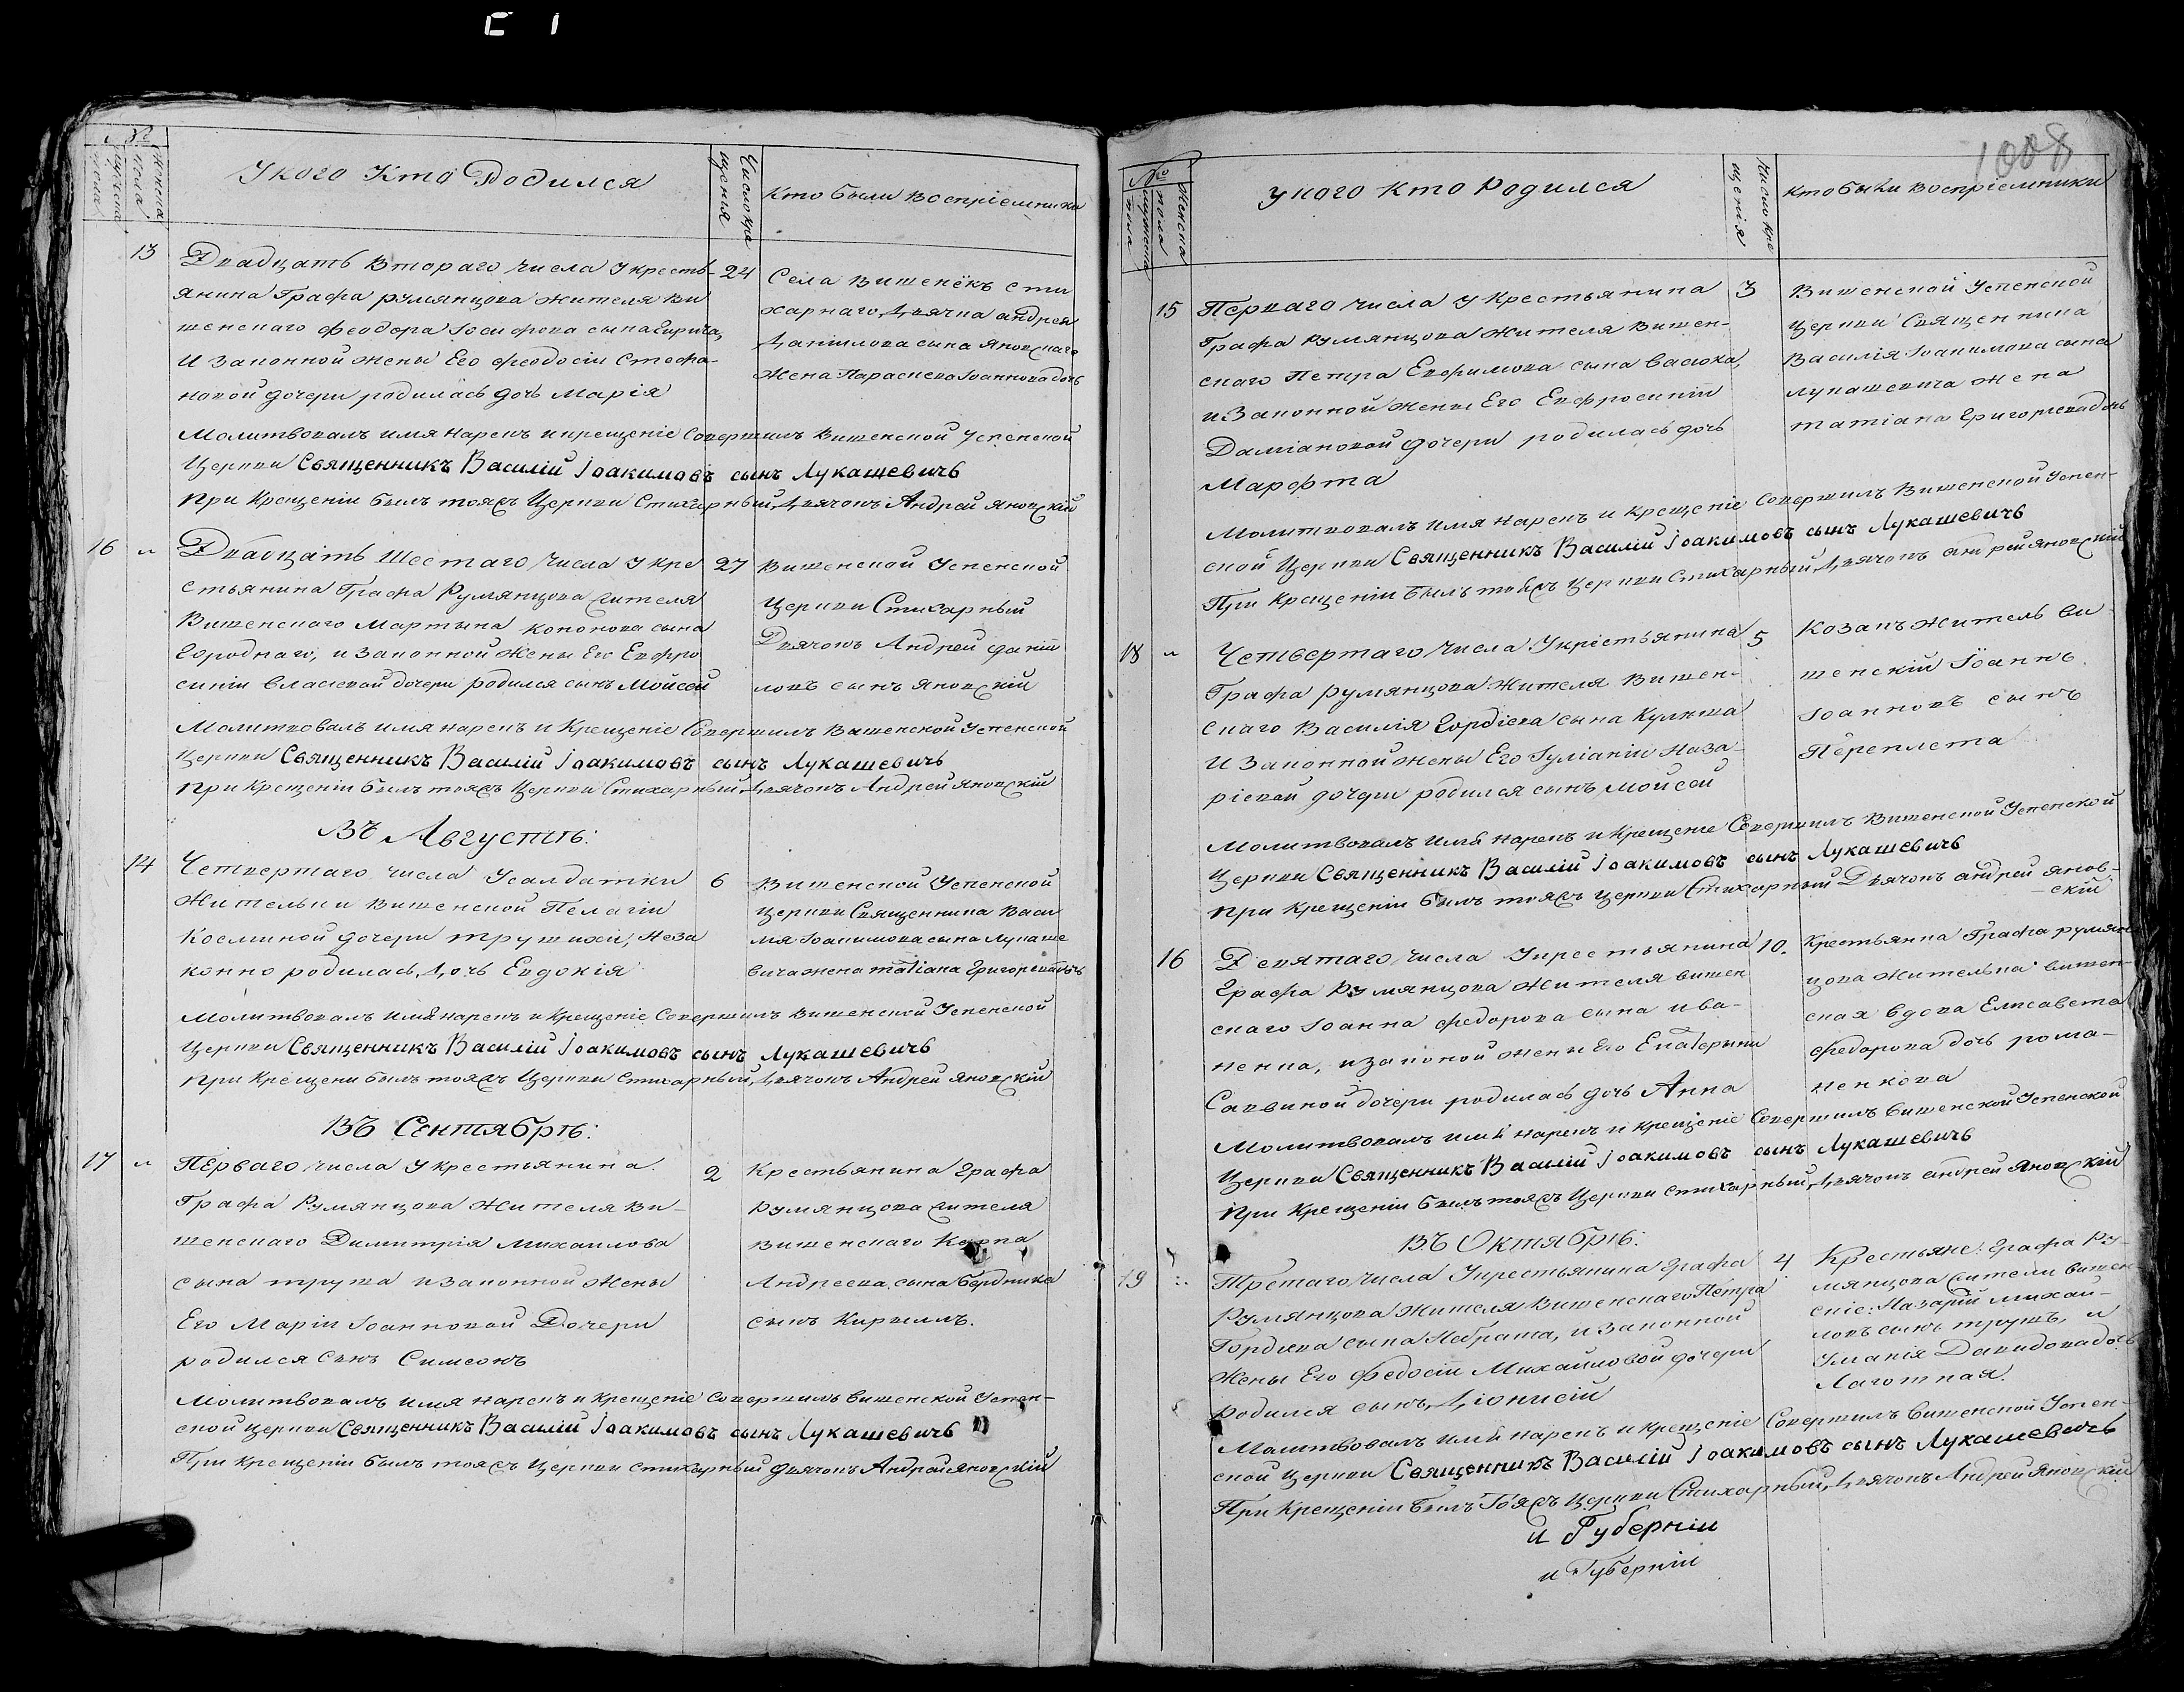 №
мужеска пола
женска пола
У кого Кто Родился
Число крещенія
Кто были Воспріемники
13
Двадцать Втораго числа У кресть-
24
янина Графа румянцова жителя Ви
шенскаго Феодора Іосифова сына
И Законной жены Его Феодосіи Стефа-
новой дочери родилась дочь Марія
Села Вишенёкъ сти
харнаго Дьячка андрея
Даніилова сына Яновскаго
жена Параскева Іоаннова дочь
Молитвовалъ имя нарекъ и крещеніе Совершилъ Вишенской Успенской
Церкви Священникъ Василій Іоакимовъ сынъ Лукашевичъ
При Крещеніи былъ тояжъ Церкви Стихарный Дьячокъ Андрей Яновскій
16 "
Двадцать Шестаго Числа У кре
27
стьянина Графа Румянцова жителя
Вишенскаго Мартына Кононова сына
Городнаго, и Законной жены Его Евфро
синіи Власіевой дочери родился сынъ Мойсей
Вишенской Успенской
Церкви Стихарный
Дьячокъ Андрей Даніи
ловъ сынъ Яновскій
Молитвовалъ имя нарекъ и Крещеніе Совершилъ Вишенской Успенской
Церкви Священникъ Василій Іоакимовъ сынъ Лукашевичъ
При Крещеніи былъ тояжъ Церкви Стихарный Дьячокъ Андрей Яновскій
Въ Августѣ:
14
Четвертаго числа Усалдатки
6
Жительки Вишенской Пелагіи
Косминой дочери трушихи, Неза
конно родилась Дочь Евдокія
Вишенской Успенской
Церкви Священника Васи
лія Іоакимова сына Лукаше
вича жена татіана Григорева дочь
Молитвовалъ имя нарекъ и Крещеніе Совершилъ Вишенской Успенской
Церкви Священникъ Василій Іоакимовъ сынъ Лукашевичъ
При Крещени былъ тояжъ Церкви Стихарный Дьячокъ Андрей Яновскій
Въ Сентябрѣ:
17 "
Перваго числа У крестьянина
2
Графа Румянцова Жителя Ви-
шенскаго Димитрія Михаилова
сына труша и законной жены
Его Маріи Іоанновой Дочери
родился Сынъ Симеонъ
Крестьянина Графа
Румянцова жителя
Вишенскаго Карпа
Андреева сына Бердника
сынъ Кириллъ.
Молитвовалъ имя нарекъ и Крещеніе Совершилъ Вишенской Успен-
ской Церкви Священникъ Василій Іоакимовъ сынъ Лукашевичъ
При Крещеніи былъ тояжъ Церкви стихарный Дьячокъ Андрей Яновскій
1008
№
мужеска пола
Женска пола
У кого кто Родился
Число крещенія
Кто были Воспріемники
15
Перваго числа у Крестьянина
3
Графа Румянцова Жителя Вишен-
скаго Петра Евфимова сына Васюка,
и Законной жены Его Евфросиніи
Даміановой дочери родилась дочь
Марфта
Вишенской Успенской
Церкви Священника
Василія Іоакимова сына
Лукашевича жена
татіана Григоріева дочь
Молитвовалъ имя нарекъ и Крещеніе Совершилъ Вишенской Успен-
ской Церкви Священникъ Василій Іоакимовъ сынъ Лукашевичъ
При Крещеніи былъ тояжъ Церкви Стихарный Дьячокъ андрей Яновскій
18 "
Четвертаго Числа У крістьянина
5
Графа румянцова Жителя Вишен-
скаго Василія Гордіева сына Кулиша
И Законной жены Его Іуліаніи Наза-
ріевой дочери родился сынъ Мойсей
Козакъ житель Ви
шенскій Іоаннъ
Іоанновъ сынъ
Переплета
Молитвовалъ имя нарекъ и Крещеніе Совершилъ Вишенской Успенской
Церкви Священникъ Василій Іоакимовъ сынъ Лукашевичъ
При Крещеніи былъ тояжъ Церкви Стихарный Дьячокъ андрей янов-
скій
16
Девятаго Числа Укрестьянина
10.
Графа Румянцова жителя вишен
скаго Іоанна Федорова сына ива-
ненка, и законой жены Его Екатерыни
Саввиной дочери родилась дочь Анна
Крестьянка Графа румян
цова жителька вишен-
ская вдова Елисавета
Федорова дочь рома-
ненкова
Молитвовалъ имя нарекъ и Крещеніе Совершилъ Вишенской Успенской
Церкви Священникъ Василій Іоакимовъ сынъ Лукашевичъ
При Крещеніи былъ тояжъ Церкви стихарный Дьячокъ андрей Яновскій
Въ Октябрѣ:
19
Третаго Числа Укрестьянина Графа
4
Румянцова Жителя Вишенскаго Петра
Гордіева сына Небрата, и Законной
Жены Его Федосіи Михайловой дочери
родился сынъ Діонисій
Крестьяне: Графа Ру-
мянцова жители вишен
скіе: Назарій михай-
ловъ сынъ трушъ, и
Давидова дочь
Лаготная.
Молитвовалъ имя нарекъ и Крещеніе Совершилъ Вишенской Успен-
ской Церкви Священникъ Василій Іоакимовъ сынъ Лукашевичъ
При Крещеніи былъ Тояжъ Церкви Стихарный Дьячокъ Андрей Яновскій
и Губерніи
и Губерніи